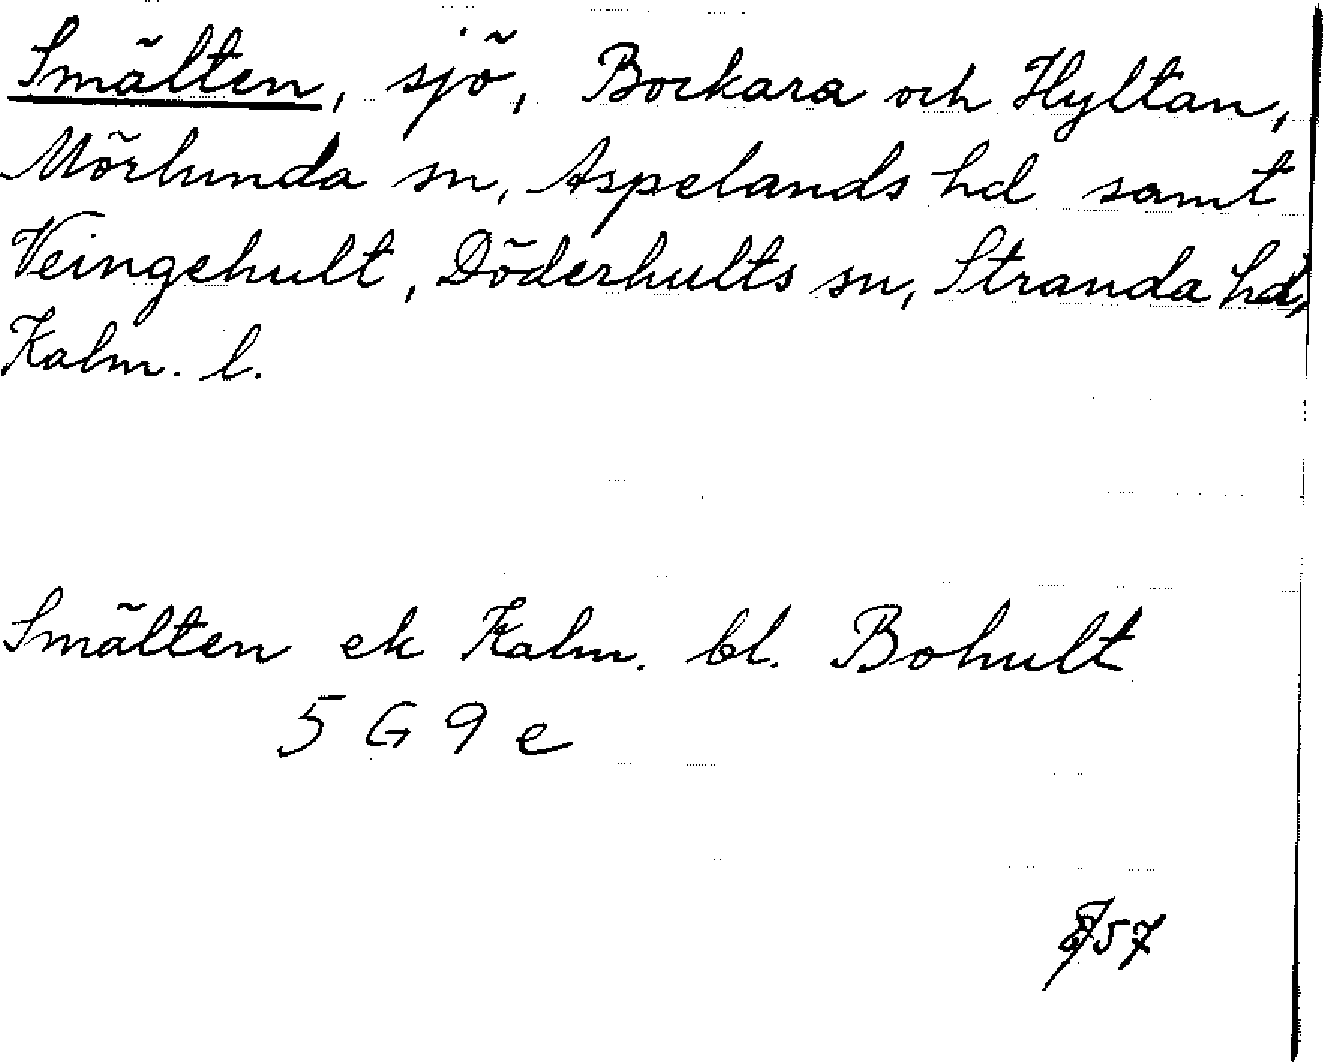 Smälten, sjö, Bockara och Hyltan,
Mörlunda sn, Aspelands hd samt
Veingehult, Döderhults sn, Stranda hd,
Kalm. l.
Smälten ek Kalm. bl. Bohult
5 G 9 e
57